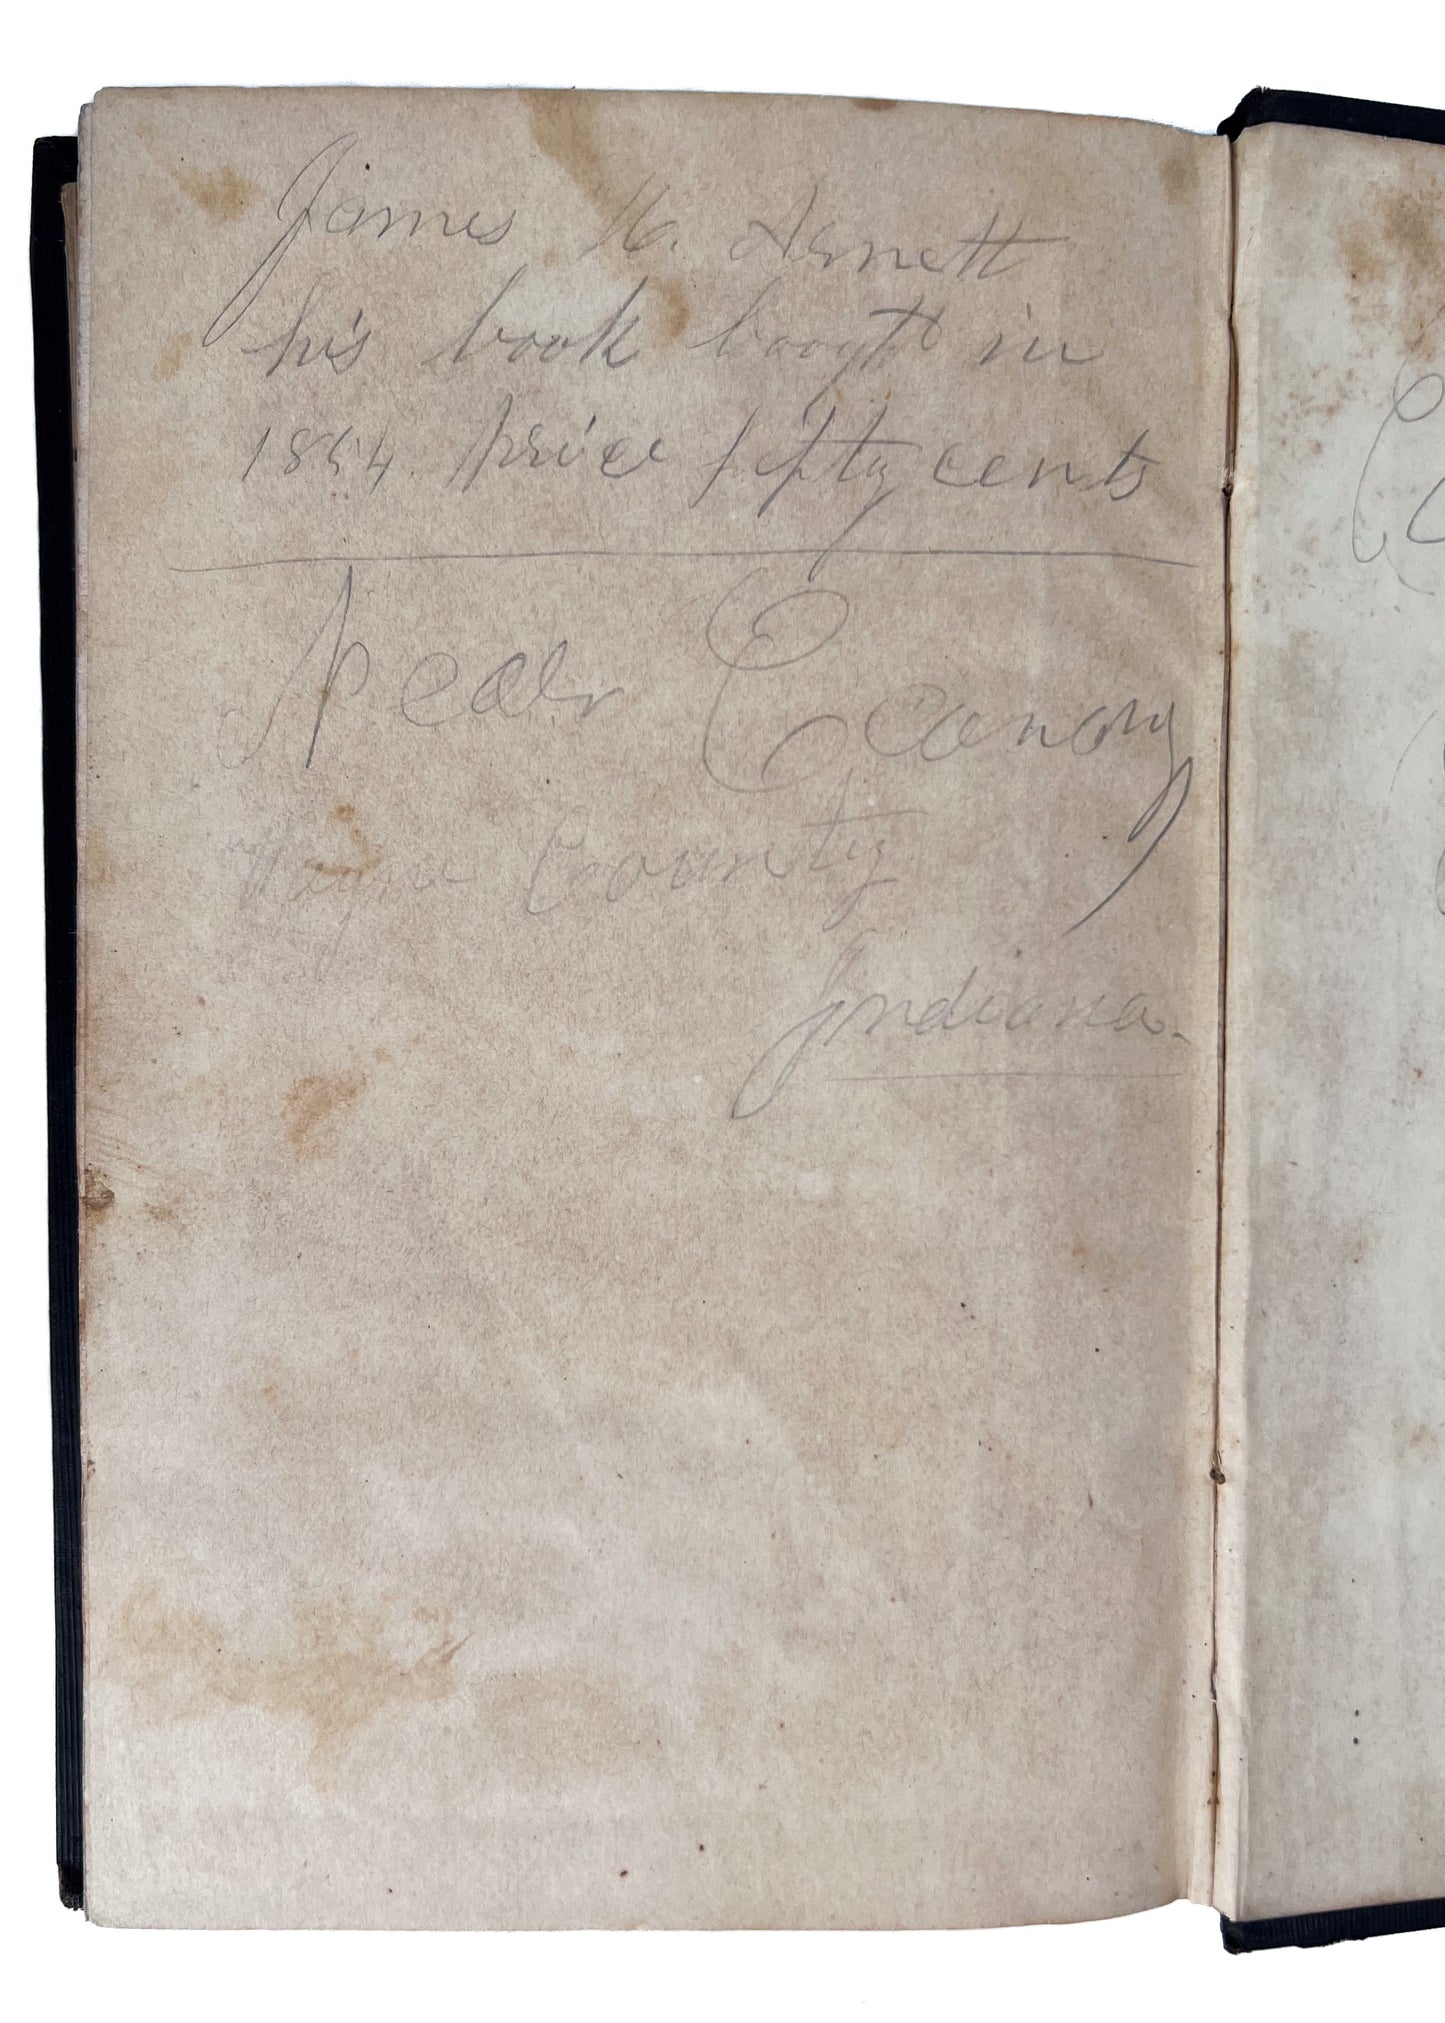 James H. Arnett
his book bougt in
1854. price fifty cents
Near Econamy
Wayne County
Indiana.